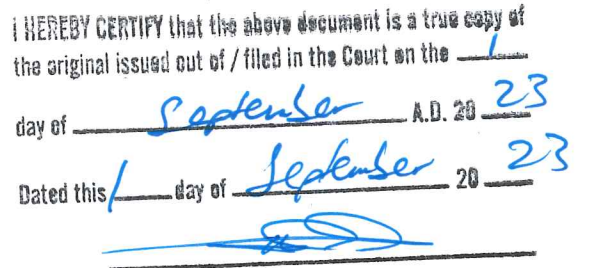 I HEREBY CERTIFY that the above document is a true copy of
the original issued out of / filed in the Court on the 1
day of September A.D. 20 23
Dated this 1 day of September 20 23